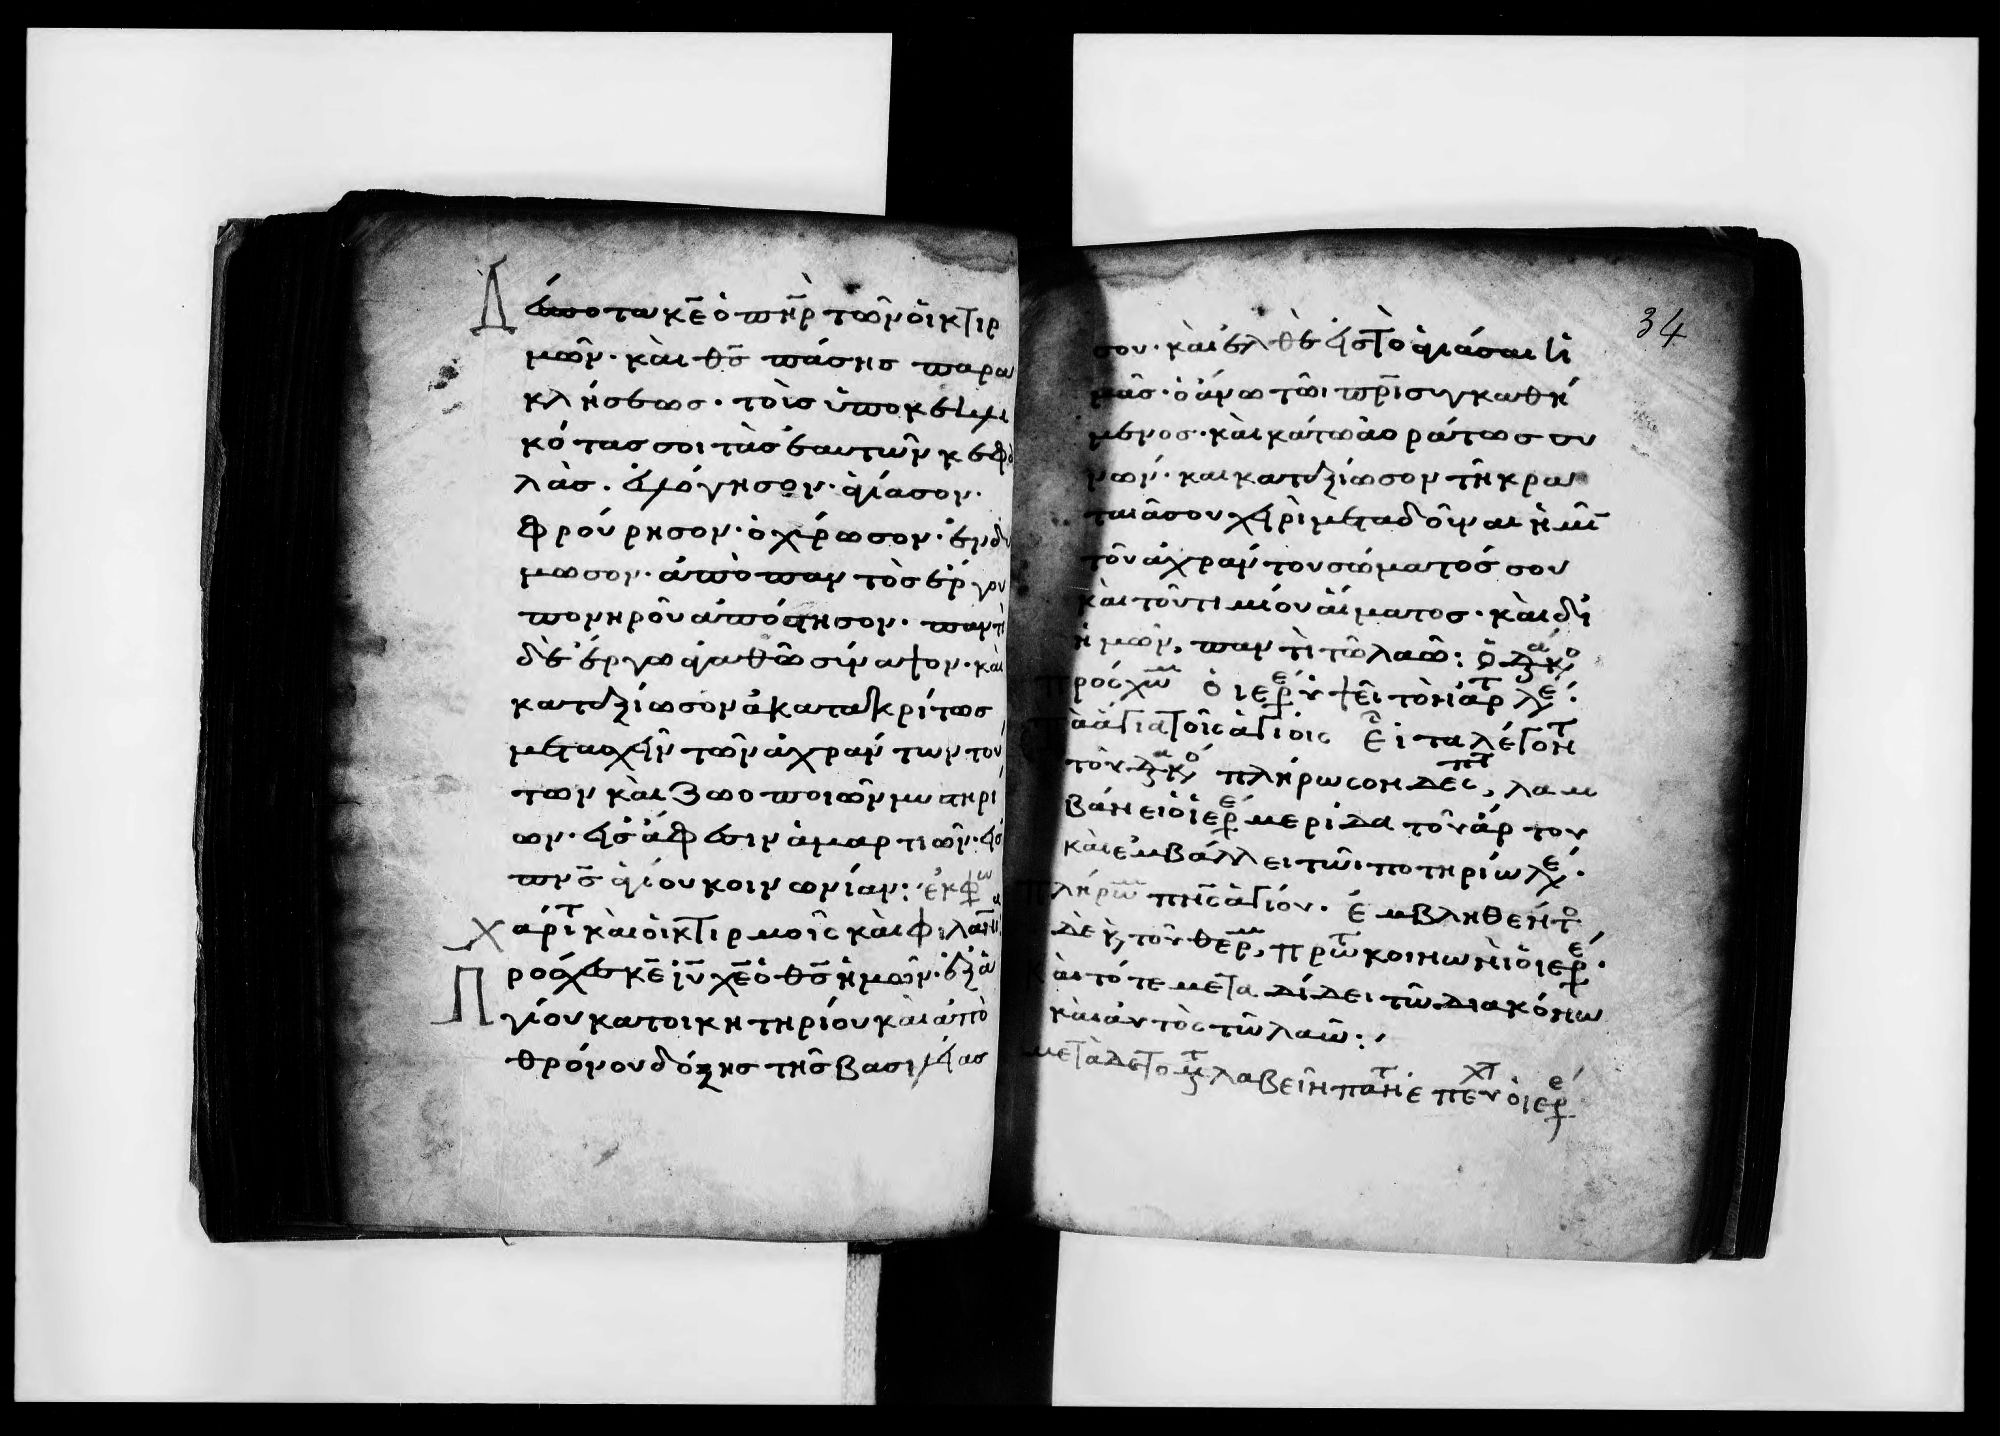 Δέσποτα κε̅ ὁ πη̅ρ τῶν οἰκτιρ
μῶν· καὶ θς̅ πάσης παρα
κλήσεως· τοὶς ὑποκεκλι
κότας σοι τὰς ἑαυτῶν κεφα
λὰς· ἐυλόγησον· ἁγίασον·
φρούρησον· ὀχύρωσον· ἐνδυ
μωσον· ἀπὸ παντὸς ἔργου
πονηροῦ ἀπόστησον· παντὶ
δὲ ἔργω ἀγαθῶ σύναψον· καὶ
καταξίωσον ἀκατακρίτως
μετασχεῖν τῶν ἀχράντων τού
των καὶ ζωοποιῶν μυστηρί
ων· εἰς ἄφεσιν ἁμαρτιῶν· εἰς
πνς̅ ἁγίου κοινωνίαν: ἐκφω
χάριτ καὶ οἰκτιρμοῖς καὶ φιλαν
Πρόσχες κε̅ ιυ̅ χε̅ ὁ θς̅ ἡμῶν· ἐξ ἁ
γίου κατοικητηρίου καὶ ἀπὸ
θρόνου δόξης τῆς βασιλείας
34
σου· καὶ ἐλθὲ εἰς τὸ ἁγιάσαι ἡ
μᾶς· ὁ ἄνω τῶι πρι̅ συγκαθή
μενος· καὶ κάτω ἀοράτως συ
νών· καὶ καταξίωσον τῆ κρα
ταιᾶ σου χειρὶ μεταδοῦναι ἡμῖ
τοῦ ἀχράντου σώματός σου
καὶ τοῦ τιμίου ἅιματος· καὶ δι
ἡμῶν, παντὶ τῶ λαῶ: ὁ διακο
πρόσχωμ ὁ ιερε ὑψεῖ τὸν ἄρτ λέ·
Τὰ ἅγια τοῖς ἁγίοις Εἶτα λέγοντ
τοῦ διακό πλήρωσον δέσπτ, λαμ
βάνει ὁ ἱερε μερίδα τοῦ ἄρτου
καὶ ἐμβάλλει τῶι ποτηρίω λέ·
πλήρωμ πνς̅ ἁγίου· Ἐμβληθέντο
δὲ κ, τοῦ θερμ, πρῶτ κοινωνεῖ ὁ ιερε·
καὶ τότε μετα δίδει τῶ διακόνω
καὶ αὐτὸς τῶ λαῶ:,
μετὰ δὲ το μτ λαβεῖν παντ ἐπευχτ ὁ ιερε